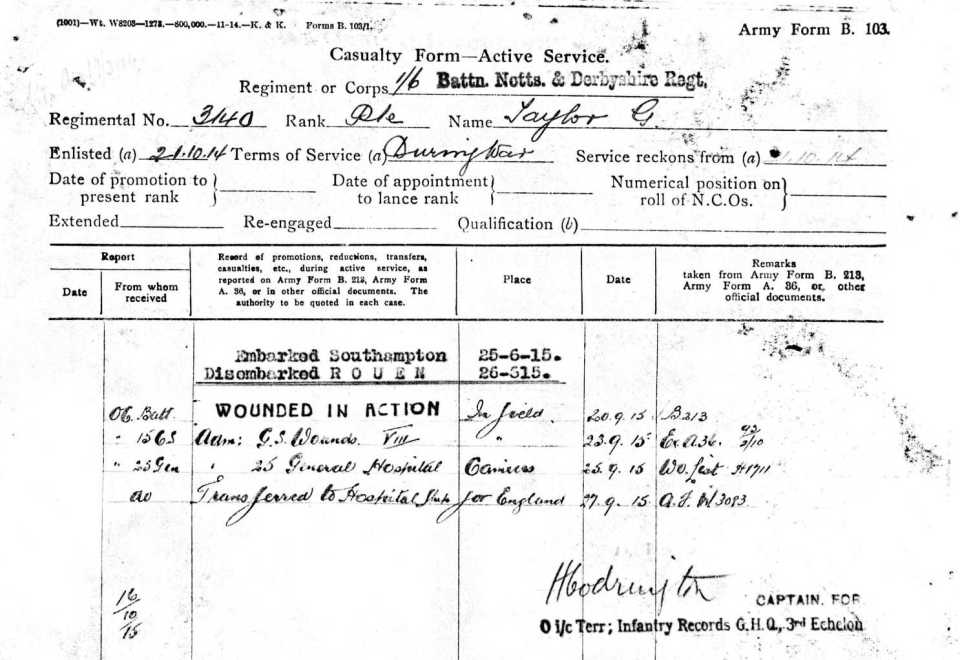 (2001)—Wt. W8203—1273.—800,000.—11-14.—K. & K. Forms B. 103/1.
Army Form B. 103.
Casualty Form—Active Service.
Regiment or Corps 1/6 Battn. Notts. & Derbyshire Regt.
Regimental No. 3140 Rank Pte Name Taylor G.
Enlisted (a) 21.10.14 Terms of Service (a) During War Service reckons from (a) 21.10.14
Date of promotion to present rank } Date of appointment to lance rank } Numerical position on roll of N.C.Os. }
Extended Re-engaged Qualification (b)
Report
Date
From whom received
Record of promotions, reductions, transfers, casualties, etc., during active service, as reported on Army Form B. 213, Army Form A. 36, or in other official documents. The authority to be quoted in each case.
Place
Date
Remarks taken from Army Form B. 213, Army Form A. 36, or other official documents.
Embarked Southampton 25-6-15.
Disembarked ROUEN 26-615.
OC. Batt. WOUNDED IN ACTION In field. 20.9.15 B213
" 15 CS Adm: G.S. Wounds. VIII " 23.9.15 Ex A36.
" 25 Gen " 25 General Hospital Camiers 25.9.15 Wo. List H1711
do Transferred to Hospital Ship for England 27.9.15 A.F. W3083
16/10/15
HCodrington CAPTAIN. FOR
O i/c Terr; Infantry Records G.H.Q., 3rd Echelon